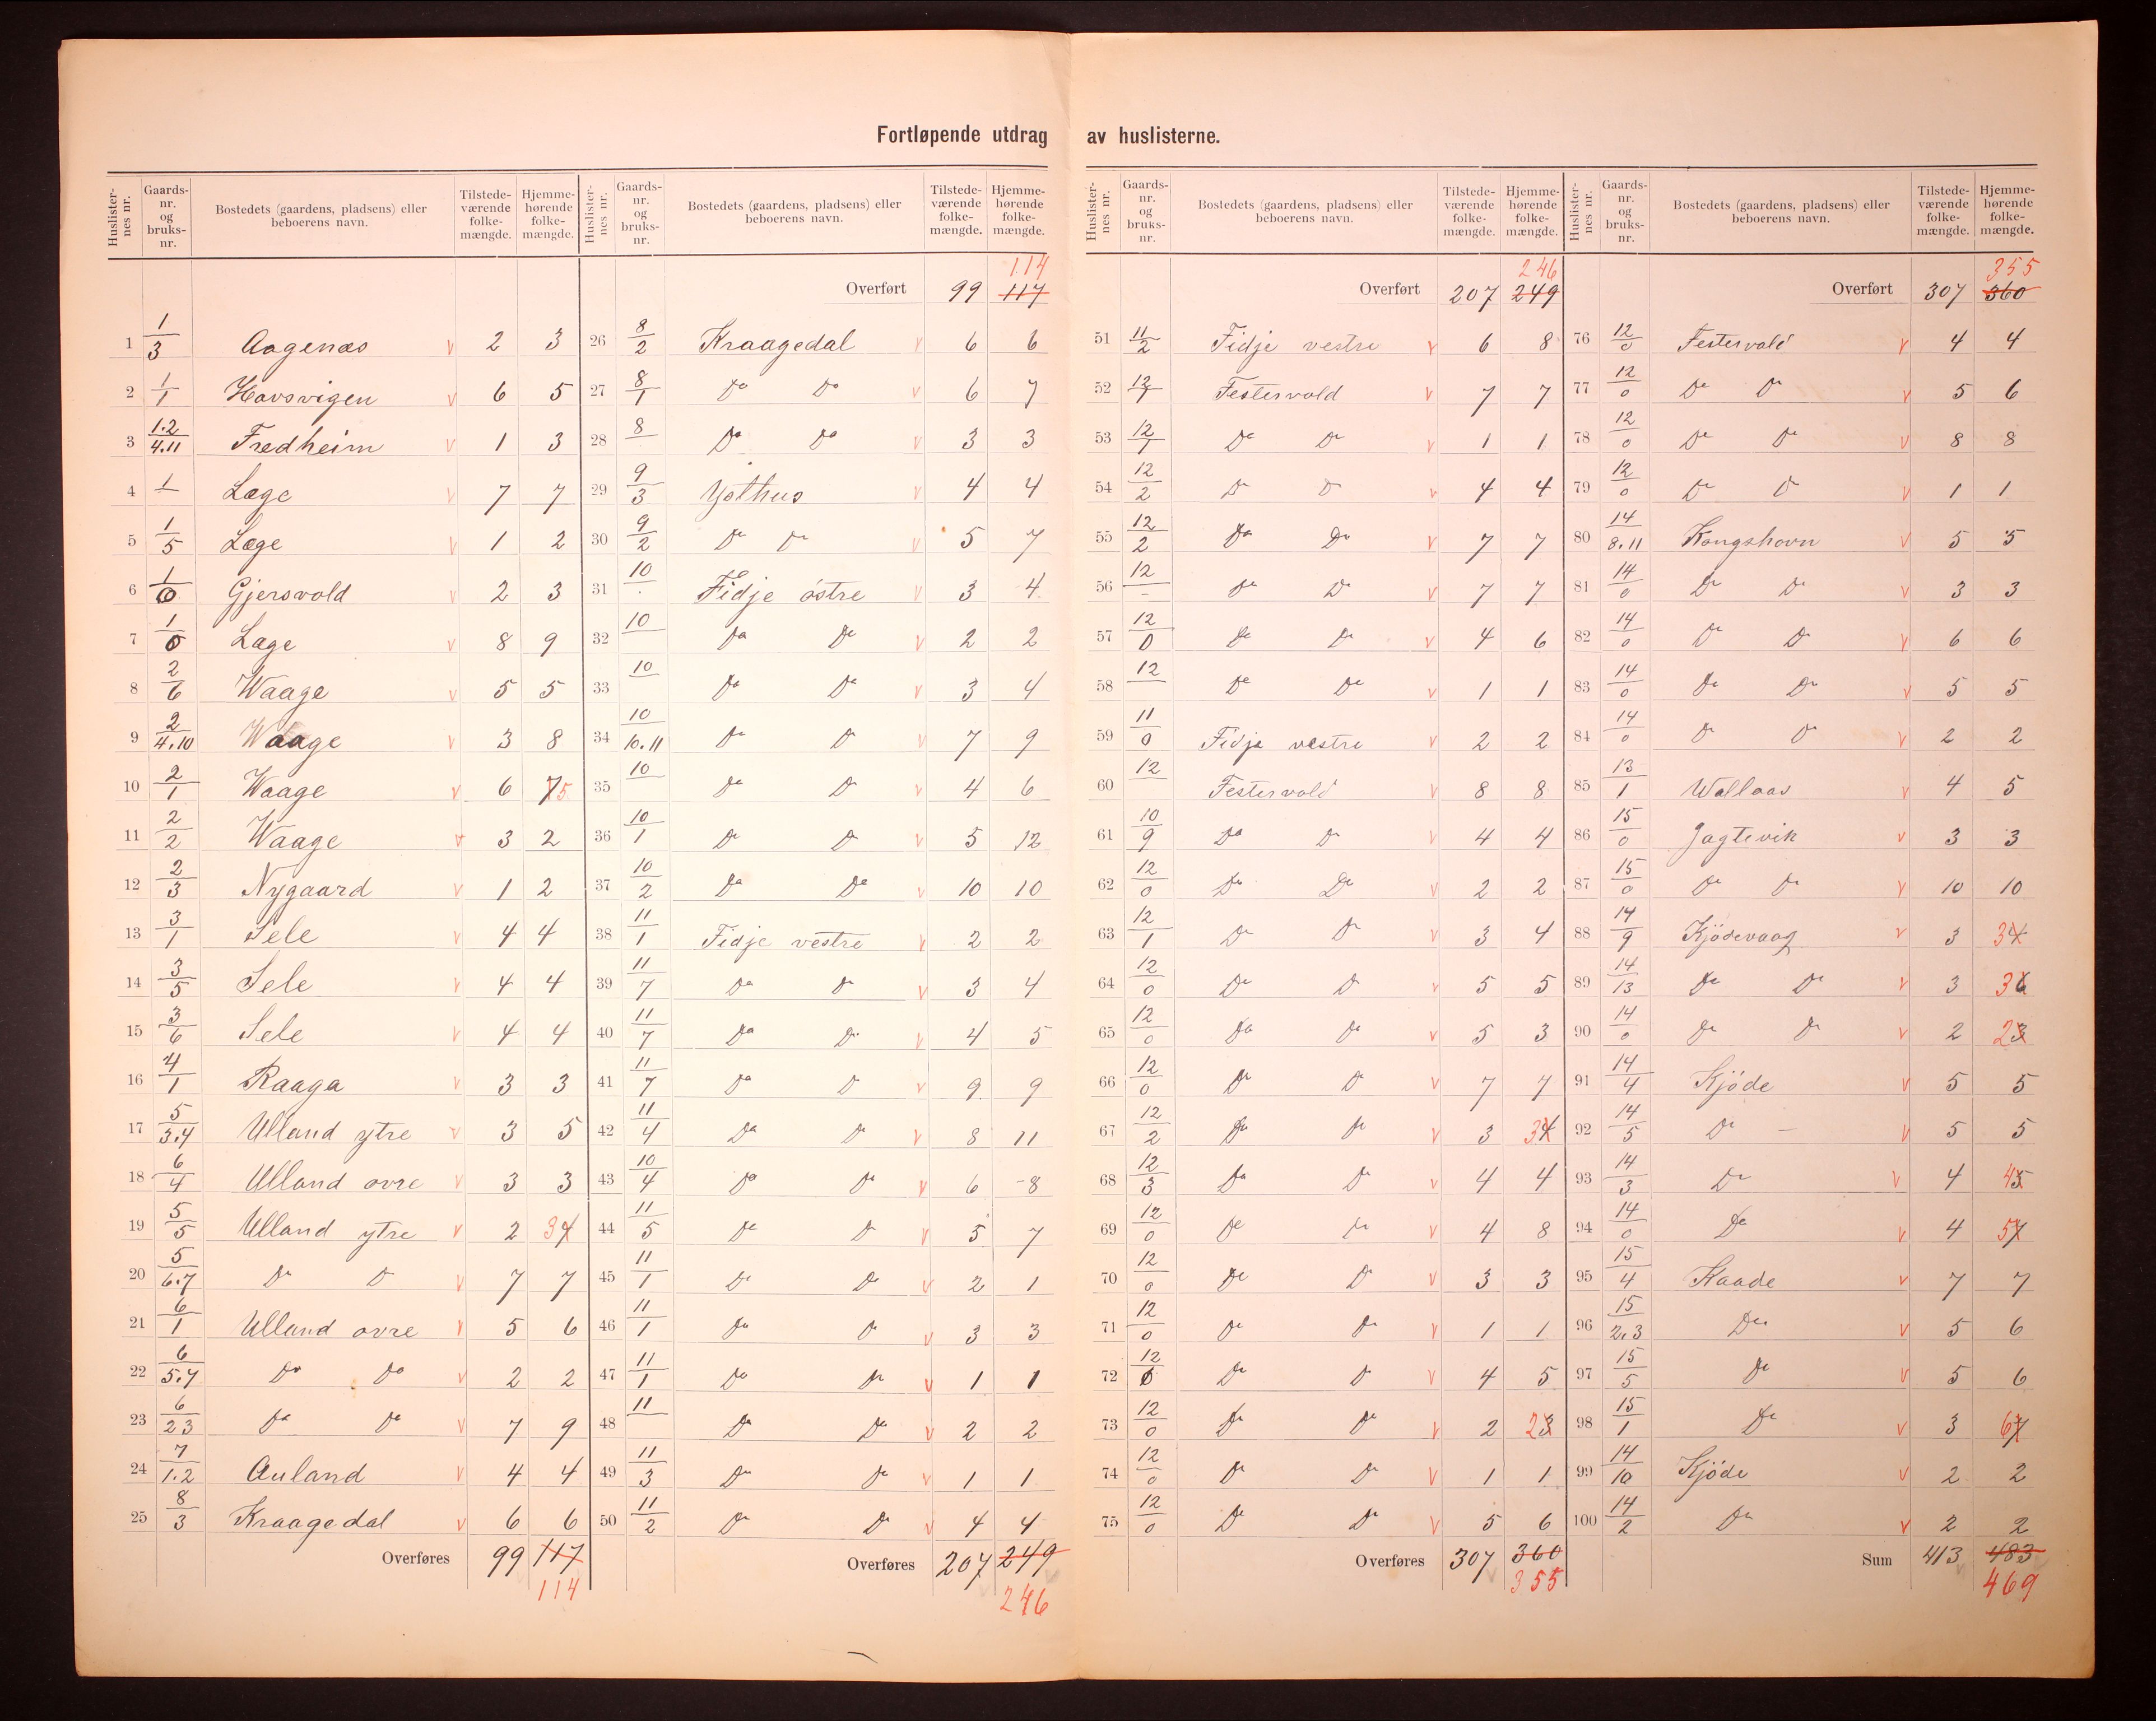 Fortløpende utdrag av huslisterne.
Huslister-nes nr. | Gaards-nr. og bruks-nr. | Bostedets (gaardens, pladsens) eller beboerens navn. | Tilstede-værende folke-mængde. | Hjemme-hørende folke-mængde.
1 1/3 Aagenæs v 2 3
2 1/1 Hovsvigen v 6 5
3 1.2/4.11 Fredheim v 1 3
4 1/ Læge v 7 7
5 1/5 Læge v 1 2
6 1/0 Gjersvold v 2 3
7 1/0 Læge v 8 9
8 2/6 Waage v 5 5
9 2/4.10 Waage v 3 8
10 2/1 Waage v 6 7 5
11 2/2 Waage v 3 2
12 2/3 Nygaard v 1 2
13 3/1 Sele v 4 4
14 3/5 Sele v 4 4
15 3/6 Sele v 4 4
16 4/1 Raaga v 3 3
17 5/3.4 Ulland ytre v 3 5
18 6/4 Ulland øvre v 3 3
19 5/5 Ulland ytre v 2 3 4
20 5/6.7 Do Do v 7 7
21 6/1 Ulland øvre v 5 6
22 6/5.7 Do Do v 2 2
23 6/23 Do Do v 7 9
24 7/1.2 Auland v 4 4
25 8/3 Kraagedal v 6 6
Overføres 99 117
114
Huslister-nes nr. | Gaards-nr. og bruks-nr. | Bostedets (gaardens, pladsens) eller beboerens navn. | Tilstede-værende folke-mængde. | Hjemme-hørende folke-mængde.
114
Overført 99 117
26 8/2 Kraagedal v 6 6
27 8/1 Do Do v 6 7
28 8/ Do Do v 3 3
29 9/3 v 4 4
30 9/2 Do Do v 5 7
31 10/ Fidje østre v 3 4
32 10/ Do Do v 2 2
33 10/ Do Do v 3 4
34 10/10.11 Do Do v 7 9
35 10/ Do Do v 4 6
36 10/1 Do Do v 5 12
37 10/2 Do Do v 10 10
38 11/1 Fidje vestre v 2 2
39 11/7 Do Do v 3 4
40 11/7 Do Do v 4 5
41 11/7 Do Do v 9 9
42 11/4 Do Do v 8 11
43 10/4 Do Do v 6 8
44 11/5 Do Do v 5 7
45 11/1 Do Do v 2 1
46 11/1 Do Do v 3 3
47 11/1 Do Do v 1 1
48 11/ Do Do v 2 2
49 11/3 Do Do v 1 1
50 11/2 Do Do v 4 4
Overføres 207 249
246
Huslister-nes nr. | Gaards-nr. og bruks-nr. | Bostedets (gaardens, pladsens) eller beboerens navn. | Tilstede-værende folke-mængde. | Hjemme-hørende folke-mængde.
246
Overført 207 249
51 11/2 Fidje vestre v 6 8
52 12/7 Festervold v 7 7
53 12/7 Do Do v 1 1
54 12/2 Do Do v 4 4
55 12/2 Do Do v 7 7
56 12/- Do Do v 7 7
57 12/0 Do Do v 4 6
58 12/ Do Do v 1 1
59 11/0 Fidje vestre v 2 2
60 12/ Festervold v 8 8
61 10/9 Do Do v 4 4
62 12/0 Do Do v 2 2
63 12/1 Do Do v 3 4
64 12/0 Do Do v 5 5
65 12/0 Do Do v 5 3
66 12/0 Do Do v 7 7
67 12/2 Do Do v 3 3 4
68 12/3 Do Do v 4 4
69 12/0 Do Do v 4 8
70 12/0 Do Do v 3 3
71 12/0 Do Do v 1 1
72 12/0 Do Do v 4 5
73 12/0 Do Do v 2 2 3
74 12/0 Do Do v 1 1
75 12/0 Do Do v 5 6
Overføres 307 360
355
Huslister-nes nr. | Gaards-nr. og bruks-nr. | Bostedets (gaardens, pladsens) eller beboerens navn. | Tilstede-værende folke-mængde. | Hjemme-hørende folke-mængde.
355
Overført 307 360
76 12/0 Festervold v 4 4
77 12/0 Do Do v 5 6
78 12/0 Do Do v 8 8
79 12/0 Do Do v 1 1
80 14/8.11 Kongshavn v 5 5
81 14/0 Do Do v 3 3
82 14/0 Do Do v 6 6
83 14/0 Do Do v 5 5
84 14/0 Do Do v 2 2
85 13/1 Wallaas v 4 5
86 15/0 Jagtevik v 3 3
87 15/0 Do Do v 10 10
88 14/9 Kjödevaag v 3 3 4
89 14/13 Do Do v 3 3 6
90 14/0 Do Do v 2 2 3
91 14/4 Kjöde v 5 5
92 14/5 Do - v 5 5
93 14/3 Do v 4 4 5
94 14/0 Do v 4 5 7
95 15/4 Kaade v 7 7
96 15/2.3 Do v 5 6
97 15/5 Do v 5 6
98 15/1 Do v 3 6 7
99 14/10 Kjöde v 2 2
100 14/2 Do v 2 2
Sum 413 483
469